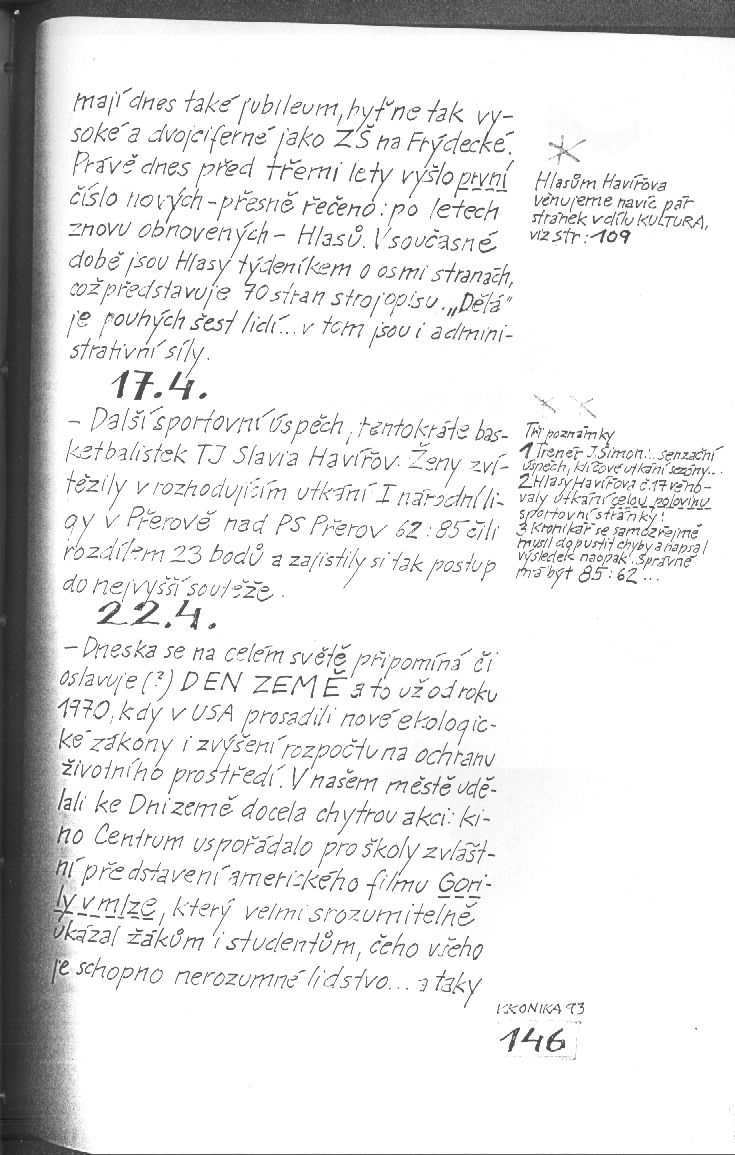 mají dnes také jubileum, byť ne tak vy-
soké a dvojciferné jako ZŠ na Frýdecké.
Právě dnes před třemi lety vyšlo první
číslo nových - přesně řečeno: po letech
znovu obnovených - Hlasů. V současné
době jsou Hlasy týdeníkem o osmi stranách,
což představuje 70 stran strojopisu. „Dělá“
je pouhých šest lidí... v tom jsou i admini-
strativní síly.
Hlasům Havířova
věnujeme navíc pár
stránek v dílu KULTURA,
viz str: 109
17.4.
- Další sportovní úspěch, tentokráte bas-
ketbalistek TJ Slavia Havířov. Ženy zví-
tězily v rozhodujícím utkání I národní li-
gy v Přerově nad PS Přerov 62:85 čili
rozdílem 23 bodů a zajistily si tak postup
do nejvyšší soutěže.
Tři poznámky
1 Trenér J. Šimon: .. senzační
úspěch, klíčové utkání sezóny...
2 Hlasy Havířova č. 17 věno-
valy utkání celou polovinu
sportovní stránky!
3 Kronikář se samozřejmě
musil dopustit chyby a napsal
výsledek naopak. Správně
má být 85:62...
22.4.
- Dneska se na celém světě připomíná či
oslavuje (?) DEN ZEMĚ a to už od roku
1970, kdy v USA prosadili nové ekologic-
ké zákony i zvýšení rozpočtu na ochranu
životního prostředí. V našem městě udě-
lali ke Dni země docela chytrou akci: ki-
no Centrum uspořádalo pro školy zvlášt-
ní představení amerického filmu Gori-
ly v mlze, který velmi srozumitelně
ukázal žákům i studentům, čeho všeho
je schopno nerozumné lidstvo... a taky
KRONIKA 93
146